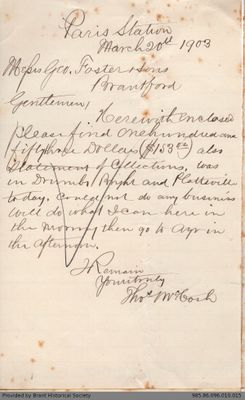 Paris Station
March 20th 1903
Messrs Geo. Foster & Sons
Brantford
Gentlemen,
Herewith enclosed
please find One hundred and
fifty three Dollars ($153.00) also
Statement of Collections, was
in Drumbo Bright and Plattsville
to day. Could not do any business
will do what I can here in
the Morning then go to Ayr in
the afternoon.
I Remain
Yours truly
Thos McCosh
Provided by Brant Historical Society
985.86.096.010.015